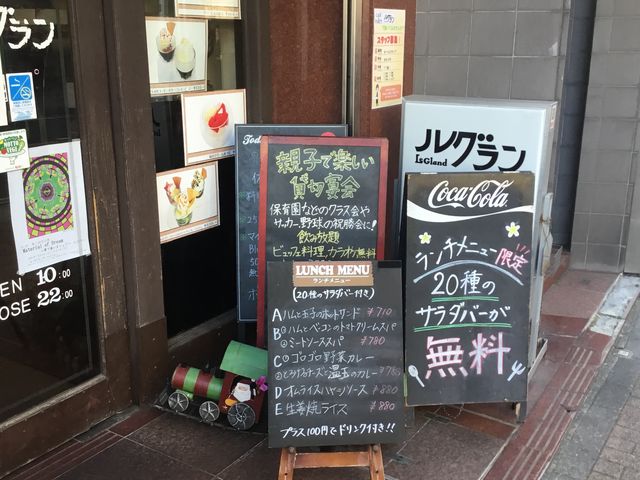 ルグラン
Material of Dream
EN 10:00
OSE 22:00
Tod
スタッフ募集
親子で楽しい
貸切宴会
保育園などのクラス会や
サッカー、野球の祝勝会に!
飲み放題
ビュッフェ料理、カラオケ無料
LUNCH MENU
ランチメニュー
(20種のサラダバー付き)
A ハムと玉子のホットサンド ¥710
B ①ハムとベーコンのトマトクリームスパ
②ミートソーススパ ¥780
C ①ゴロゴロ野菜カレー
②とろけるチーズと温玉のカレー ¥880
D オムライスハヤシソース ¥880
E 生姜焼ライス ¥880
プラス100円でドリンク付き!!
ルグラン
IsGland
Coca-Cola
ランチメニュー限定
20種の
サラダバーが
無料